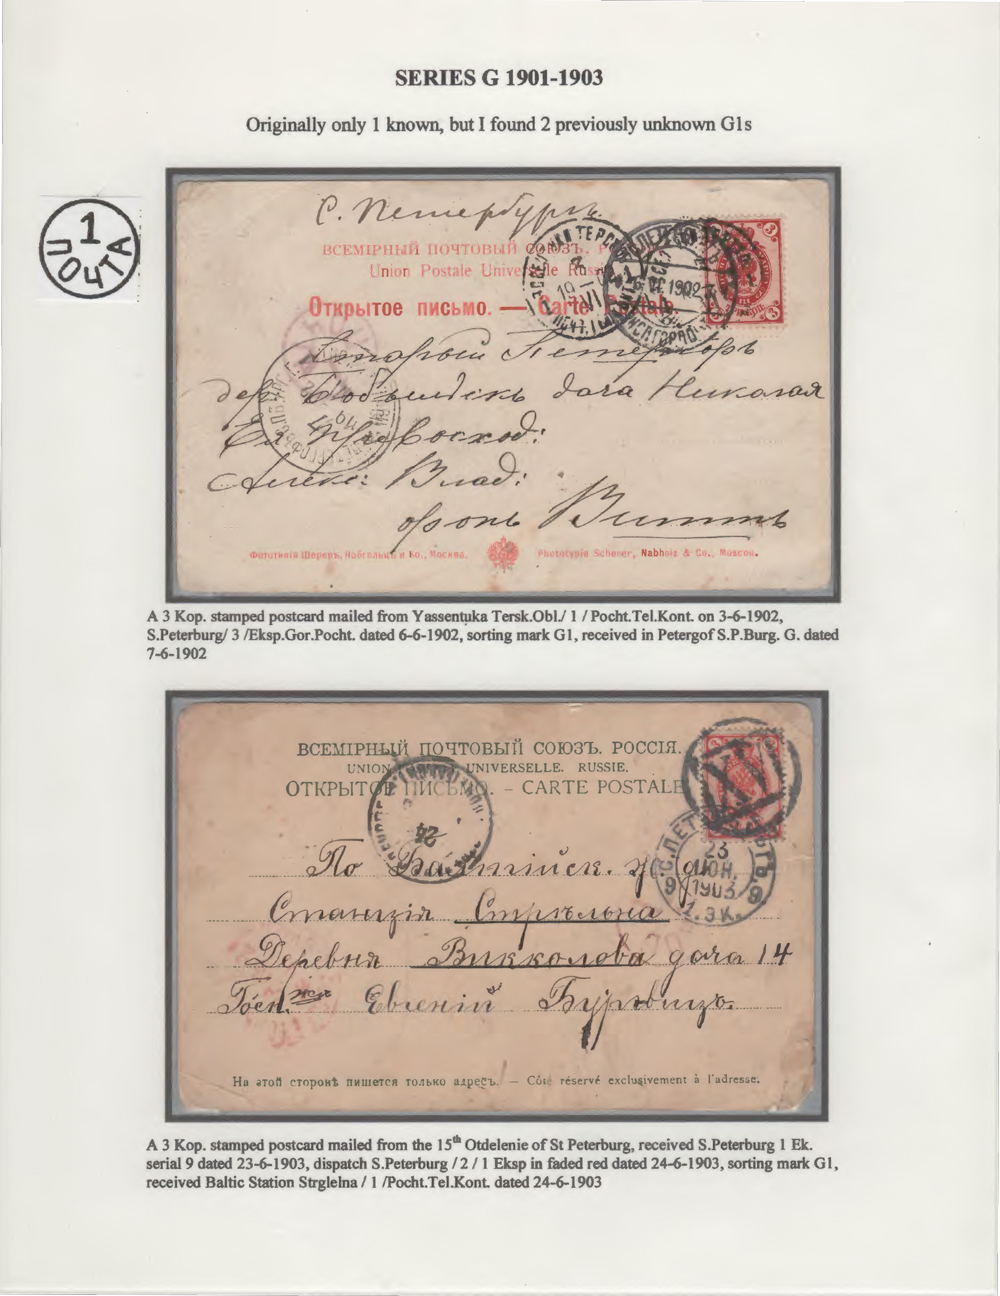 SERIES G 1901-1903
Originally only 1 known, but I found 2 previously unknown G1s
1
ПОЧТА
С. Петербургъ
ВСЕМІРНЫЙ ПОЧТОВЫЙ СОЮЗЪ.
Union Postale Universelle Russie
Открытое письмо. — Carte Postale.
1902
Старый Петергофъ
дер. дача Николая
Ея Превосход:
Алекс: Влад:
фонъ Виттъ
Фототипія Шереръ, Набгольцъ и Ко., Москва.
Phototypie Scherer, Nabholz & Co., Moscou.
A 3 Kop. stamped postcard mailed from Yassentuka Tersk.Obl./ 1 / Pocht.Tel.Kont. on 3-6-1902,
S.Peterburg/ 3 /Eksp.Gor.Pocht. dated 6-6-1902, sorting mark G1, received in Petergof S.P.Burg. G. dated
7-6-1902
ВСЕМІРНЫЙ ПОЧТОВЫЙ СОЮЗЪ. РОССІЯ.
UNION UNIVERSELLE. RUSSIE.
ОТКРЫТОЕ ПИСЬМО. – CARTE POSTALE
XV
24
С.ПЕТЕРБУРГЪ.
23
ІЮН.
1903
9 9
1.ЭК.
По Балтійск. ж. д.
Станція Стрѣльна
Деревня Викколова дача 14
Госп.жѣ Евгеній Бурвицъ.
На этой сторонѣ пишется только адресъ. — Côté réservé exclusivement à l'adresse.
A 3 Kop. stamped postcard mailed from the 15th Otdelenie of St Peterburg, received S.Peterburg 1 Ek.
serial 9 dated 23-6-1903, dispatch S.Peterburg / 2 / 1 Eksp in faded red dated 24-6-1903, sorting mark G1,
received Baltic Station Strglelna / 1 /Pocht.Tel.Kont. dated 24-6-1903